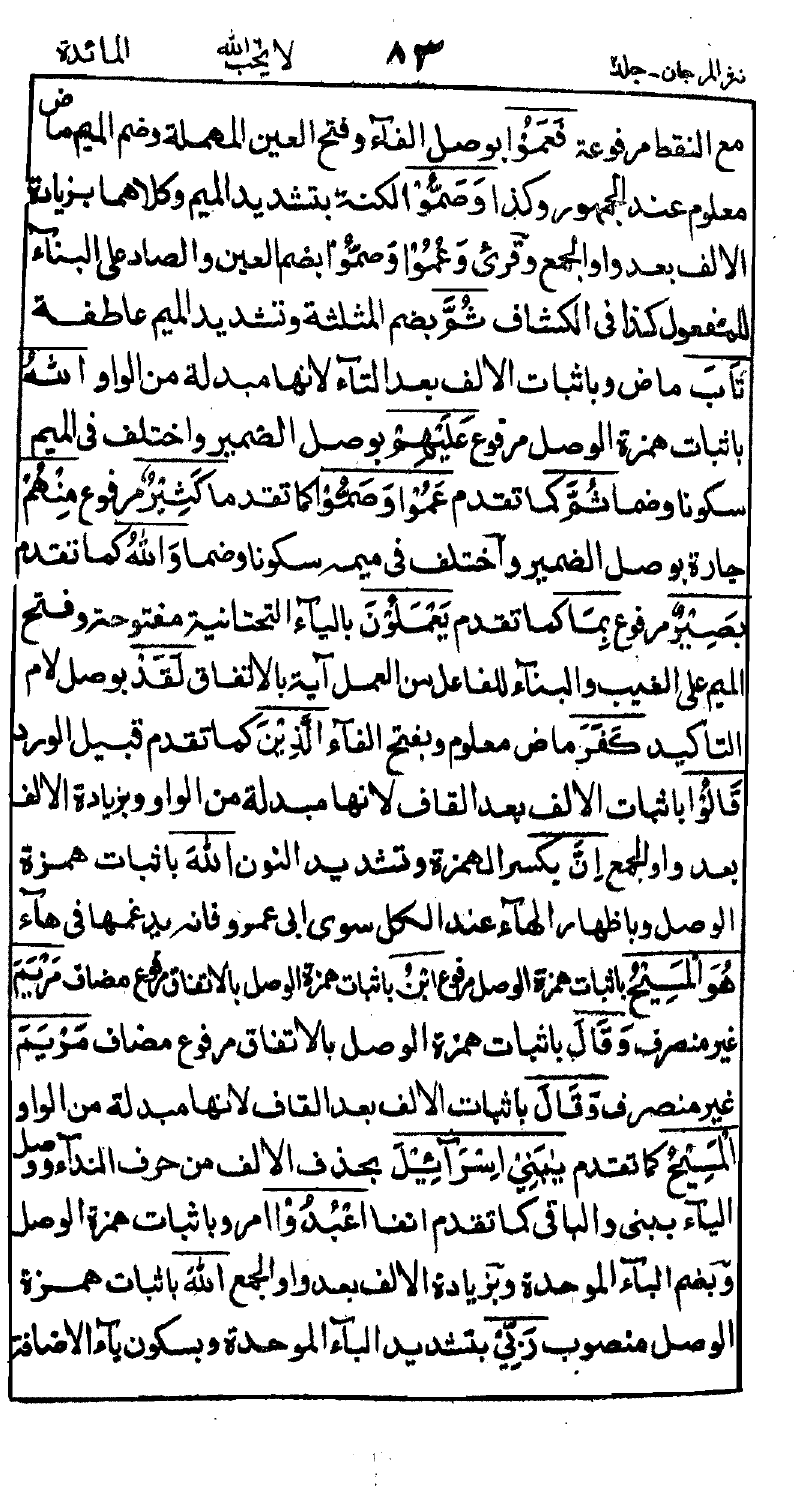 نثر المرجان - جلد ٢ ٨٣ لا يحب الله المائدة
مع النقط مرفوعة فَعَمُوْا بوصل الفآء وفتح العين المهملة وضم الميم ماض
معلوم عند الجمهور وكذا وَصَمُّوْا لكنه بتشديد الميم وكلاهما بزيادة
الالف بعد واو الجمع وقرئ وَعُمُوْا وَصُمُّوْا بضم العين والصاد على البنآء
للمفعول كذا فى الكشاف ثُمَّ بضم المثلثة وتشديد الميم عاطفة
تَابَ ماض وباثبات الالف بعد التآء لانها مبدلة من الواو اللهُ
باثبات همزة الوصل مرفوع عَلَيْهِمْ بوصل الضمير واختلف فى الميم
سكونا وضما ثُمَّ كما تقدم عَمُوْا وَصَمُّوْا كما تقدما كَثِيْرٌ مرفوع مِنْهُمْ
جارة بوصل الضمير وآختلف فى ميمه سكونا وضما وَاللهُ كما تقدم
بَصِيْرٌ مرفوع بِمَا كما تقدم يَعْمَلُوْنَ باليآء التحتانية مفتوحة وفتح
الميم على الغيب والبنآء للفاعل من العمل آية بالاتفاق لَقَدْ بوصل لام
التاكيد كَفَرَ ماض معلوم وبفتح الفآء الَّذِيْنَ كما تقدم قبيل الورد
قَالُوْا باثبات الالف بعد القاف لانها مبدلة من الواو وبزيادة الالف
بعد واو الجمع اِنَّ بكسر الهمزة وتشديد النون اللهَ باثبات همزة
الوصل وباظهار الهآء عند الكل سوى ابى عمرو فانه يدغمها فى هآء
هُوَ الْمَسِيْحُ باثبات همزة الوصل مرفوع ابْنُ باثبات همزة الوصل بالاتفاق مرفوع مضاف مَرْيَمَ
غير منصرف وَقَالَ باثبات همزة الوصل بالاتفاق مرفوع مضاف مَرْيَمَ
غير منصرف وَقَالَ باثبات الالف بعد القاف لانها مبدلة من الواو
الْمَسِيْحُ كما تقدم يٰبَنِىْ اِسْرَآئِيْلَ بحذف الالف من حرف الندآء ووصل
اليآء ببنى والباقى كما تقدم انفا اعْبُدُوْا امر وباثبات همزة الوصل
وبضم البآء الموحدة وبزيادة الالف بعد واو الجمع اللهَ باثبات همزة
الوصل منصوب رَبِّىْ بتشديد البآء الموحدة وبسكون يآء الاضافة